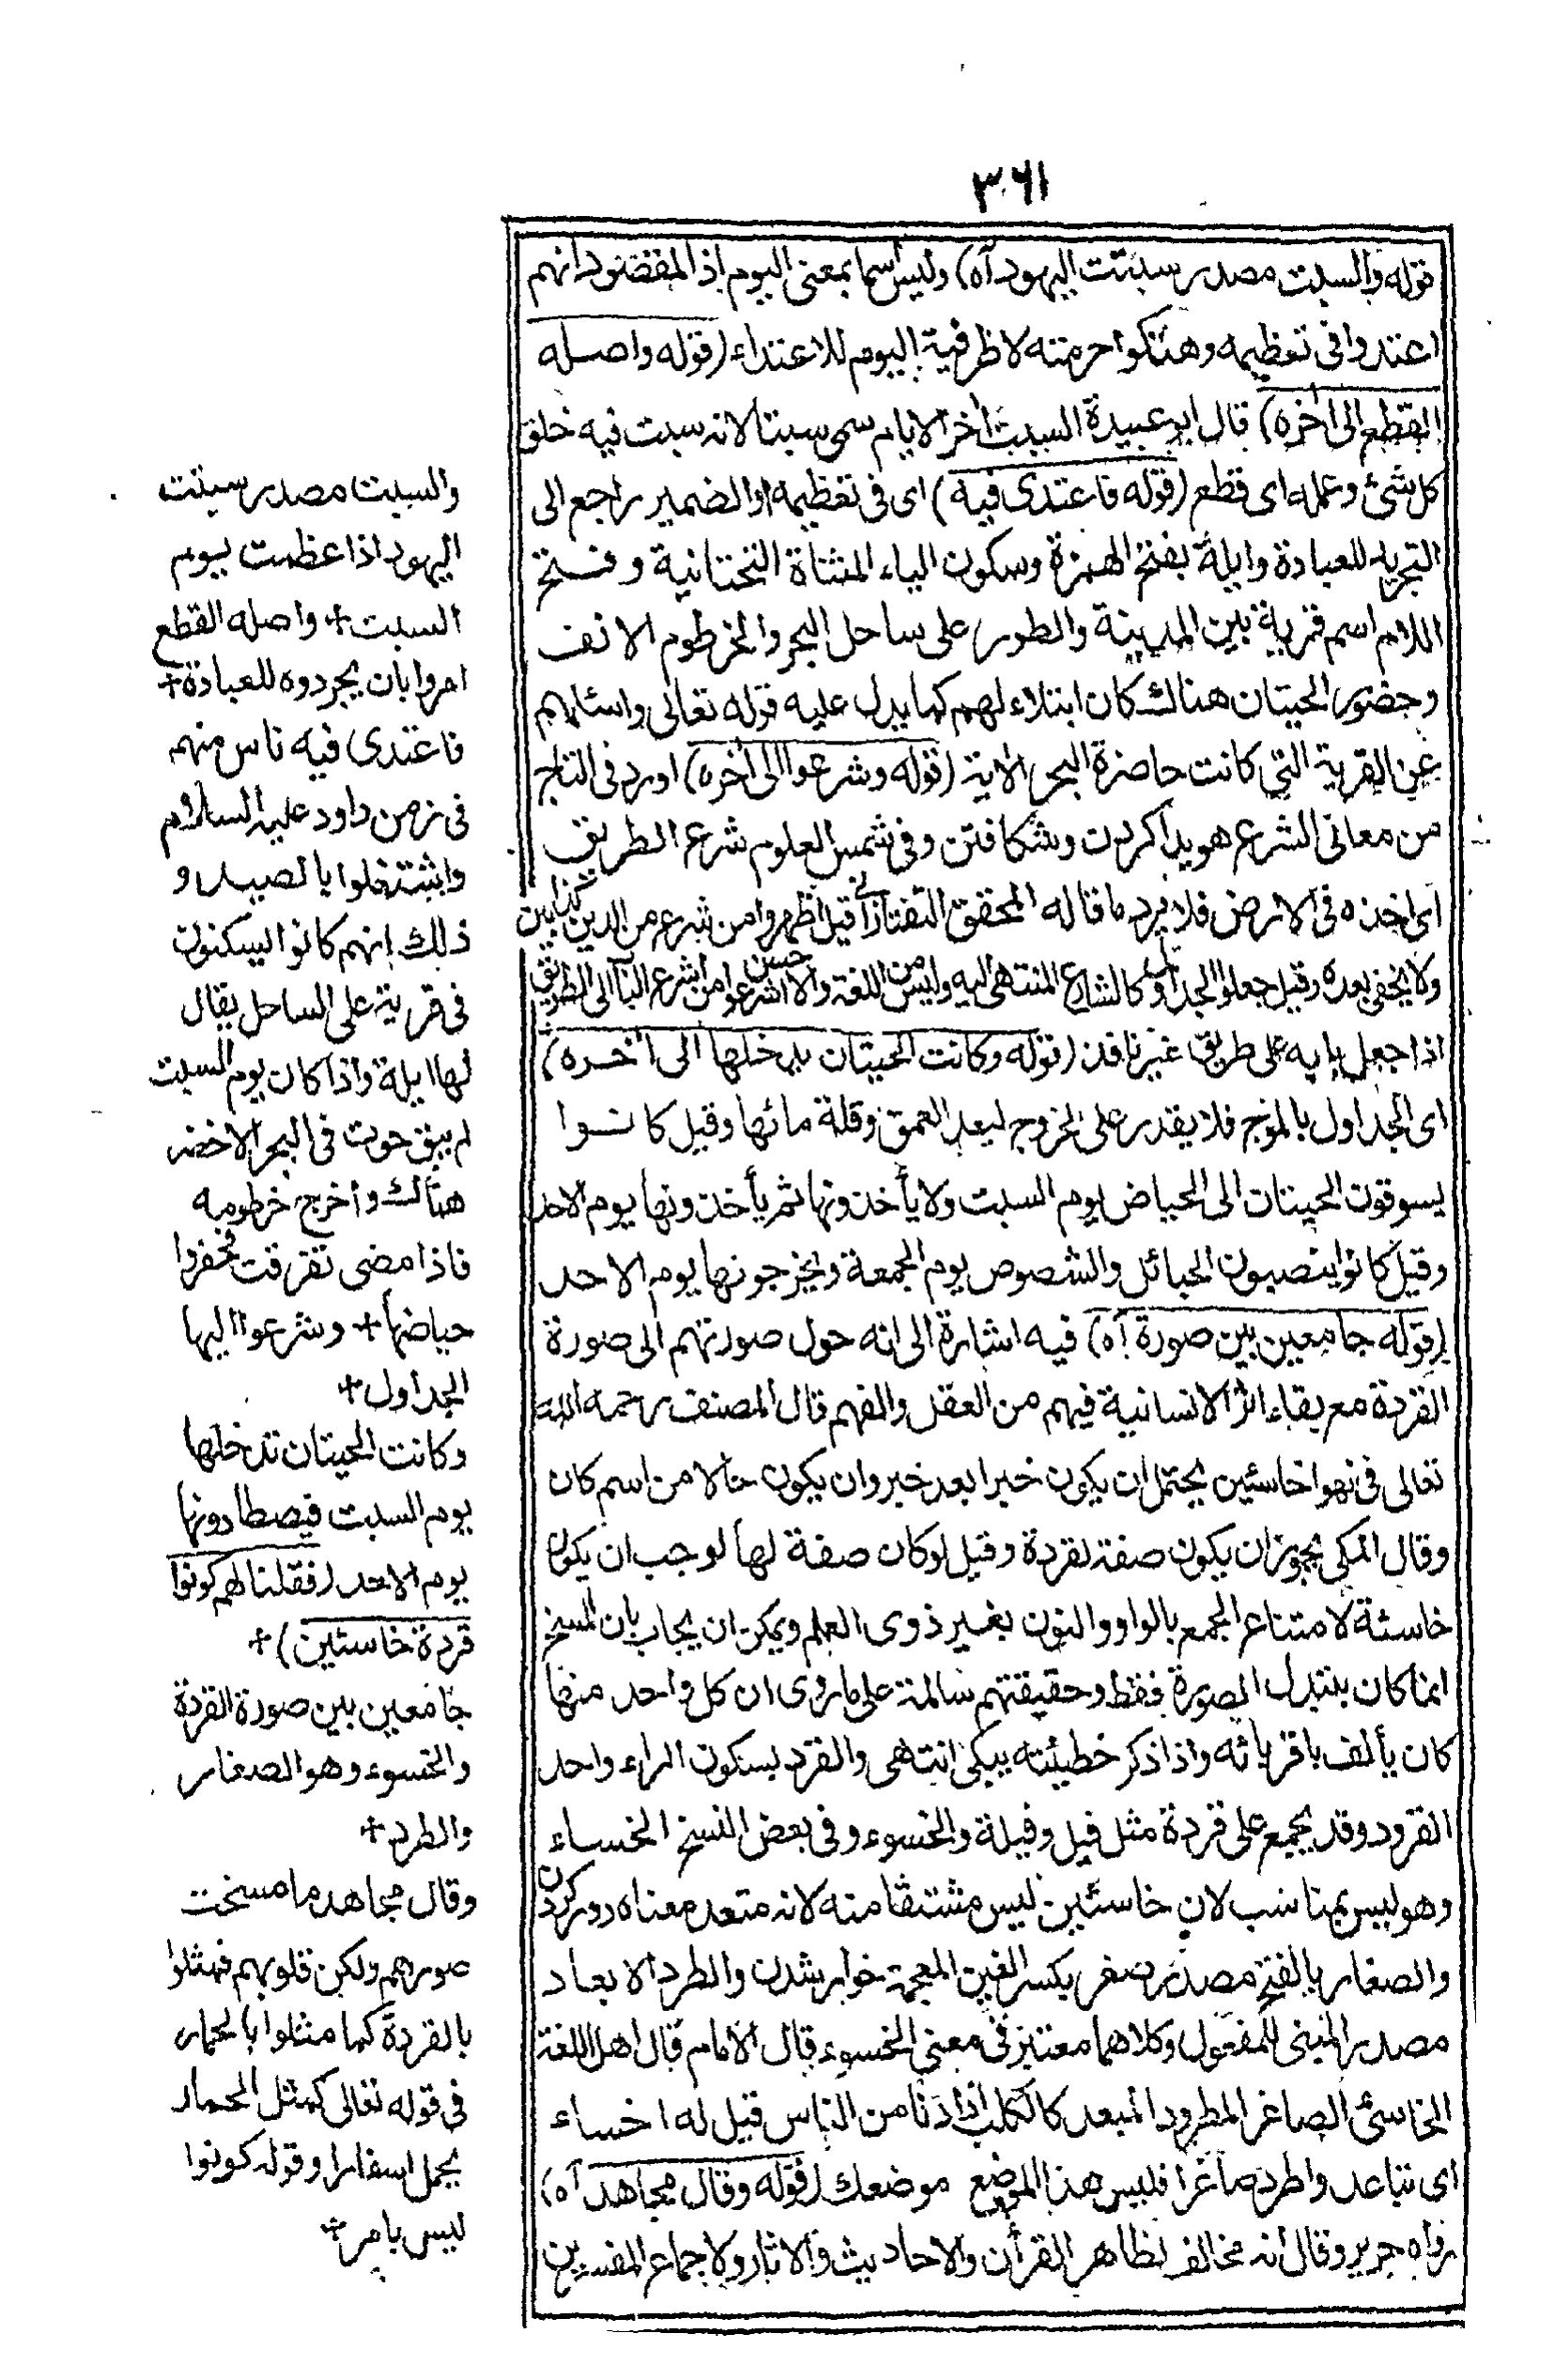 ٣٦١
قوله والسبت مصدر سبتت اليهود آه) وليس اسما بمعنى اليوم اذ المقصود انهم
اعتدوا فى تعظيمه وهتكوا حرمته لا ظرفية اليوم للاعتداء (قوله واصله
القطع الى اٰخره) قال ابو عبيدة السبت اٰخر الايام سمى سبتا لانه سبت فيه خلق
كل شئ وعمله اى قطع (قوله فاعتدى فيه) اى فى تعظيمه او الضمير راجع الى
التجريد للعبادة وايلة بفتح الهمزة وسكون الياء المثناة التحتانية وفتح
اللام اسم قرية بين المدينة والطور على ساحل البحر والخرطوم الانف
وحضور الحيتان هنالك كان ابتلاء لهم كما يدل عليه قوله تعالى واسئلهم
عن القرية التى كانت حاضرة البحر الاية (قوله وشرعوا الى اٰخره) اورد فى التاج
من معانى الشرع هويدا كردن وشكافتن وفى شمس العلوم شرع الطريق
اى اخذه فى الارض فلا يرد ما قاله المحقق التفتازانى قيل اظهروا من شرع من الدين كذا بين
ولا يخفى بعده وقيل جعلوا الجداول كالشارع المنتهى اليه وليس من اللغة والاحسن اشرعوا من اشرع الباب الى الطريق
اذا جعل بابه على طريق غير نافذ (قوله وكانت الحيتان يدخلها الى اٰخره)
اى الجداول بالموج فلا يقدر على الخروج لبعد العمق وقلة مائها وقيل كانوا
يسوقون الحيتان الى الحياض يوم السبت ولا يأخذونها ثم يأخذونها يوم الاحد
وقيل كانوا ينصبون الحبائل والشصوص يوم الجمعة ويخرجونها يوم الاحد
(قوله جامعين بين صورة اٰه) فيه اشارة الى انه حول صورتهم الى صورة
القردة مع بقاء اثر الانسانية فيهم من العقل والفهم قال المصنف رحمه الله
تعالى فى نهوا خاسئين يحتمل ان يكون خبرا بعد خبر وان يكون حالا من اسم كان
وقال المكى يجوز ان يكون صفة لقردة وقيل لو كان صفة لها لوجب ان يكون
خاسئة لامتناع الجمع بالواو والنون بغير ذوى العلم ويمكن ان يجاب بان المسخ
انما كان بتبدل الصورة فقط وحقيقتهم سالمة على ما روى ان كل واحد منها
كان يألف باقربائه واذا ذكر خطيئته يبكى انتهى والقرد بسكون الراء واحد
القرود وقد يجمع على قردة مثل فيل وفيلة والخسوء وفى بعض النسخ الخساء
وهو ليس بمناسب لان خاسئين ليس مشتقا منه لانه متعد معناه دور كردن
والصغار بالفتح مصدر صغر بكسر الغين المعجمة خوار شدن والطرد الابعاد
مصدر المبنى للمفعول وكلاهما معتبر فى معنى الخسوء قال الامام قال اهل اللغة
الخاسئ الصاغر المطرود المبعد كالكلب اذا دنا من الناس قيل له اخساء
اى تباعد وانطرد صاغرا فليس هذا الموضع موضعك (قوله وقال مجاهد آه)
رواه جرير وقال انه مخالف لظاهر القرأن والاحاديث والاثار ولاجماع المفسرين
والسبت مصدر سبتت
اليهود اذا عظمت يوم
السبت + واصله القطع
امروا بان يجردوه للعبادة +
فاعتدى فيه ناس منهم
فى زمن داود عليه السلام
واشتغلوا بالصيد و
ذلك انهم كانوا يسكنون
فى قرية على الساحل يقال
لها ايلة واذا كان يوم السبت
لم يبق حوت فى البحر الا حضر
هنالك واخرج خرطومه
فاذا مضى تفرقت فحفروا
حياضها + وشرعوا اليها
الجداول +
وكانت الحيتان تدخلها
يوم السبت فيصطادونها
يوم الاحد (فقلنا لهم كونوا
قردة خاسئين) +
جامعين بين صورة القردة
والخسوء وهو الصغار
والطرد +
وقال مجاهد ما مسخت
صورهم ولكن قلوبهم فمثلوا
بالقردة كما مثلوا بالحمار
فى قوله تعالى كمثل الحمار
يحمل اسفارا وقوله كونوا
ليس بامر +